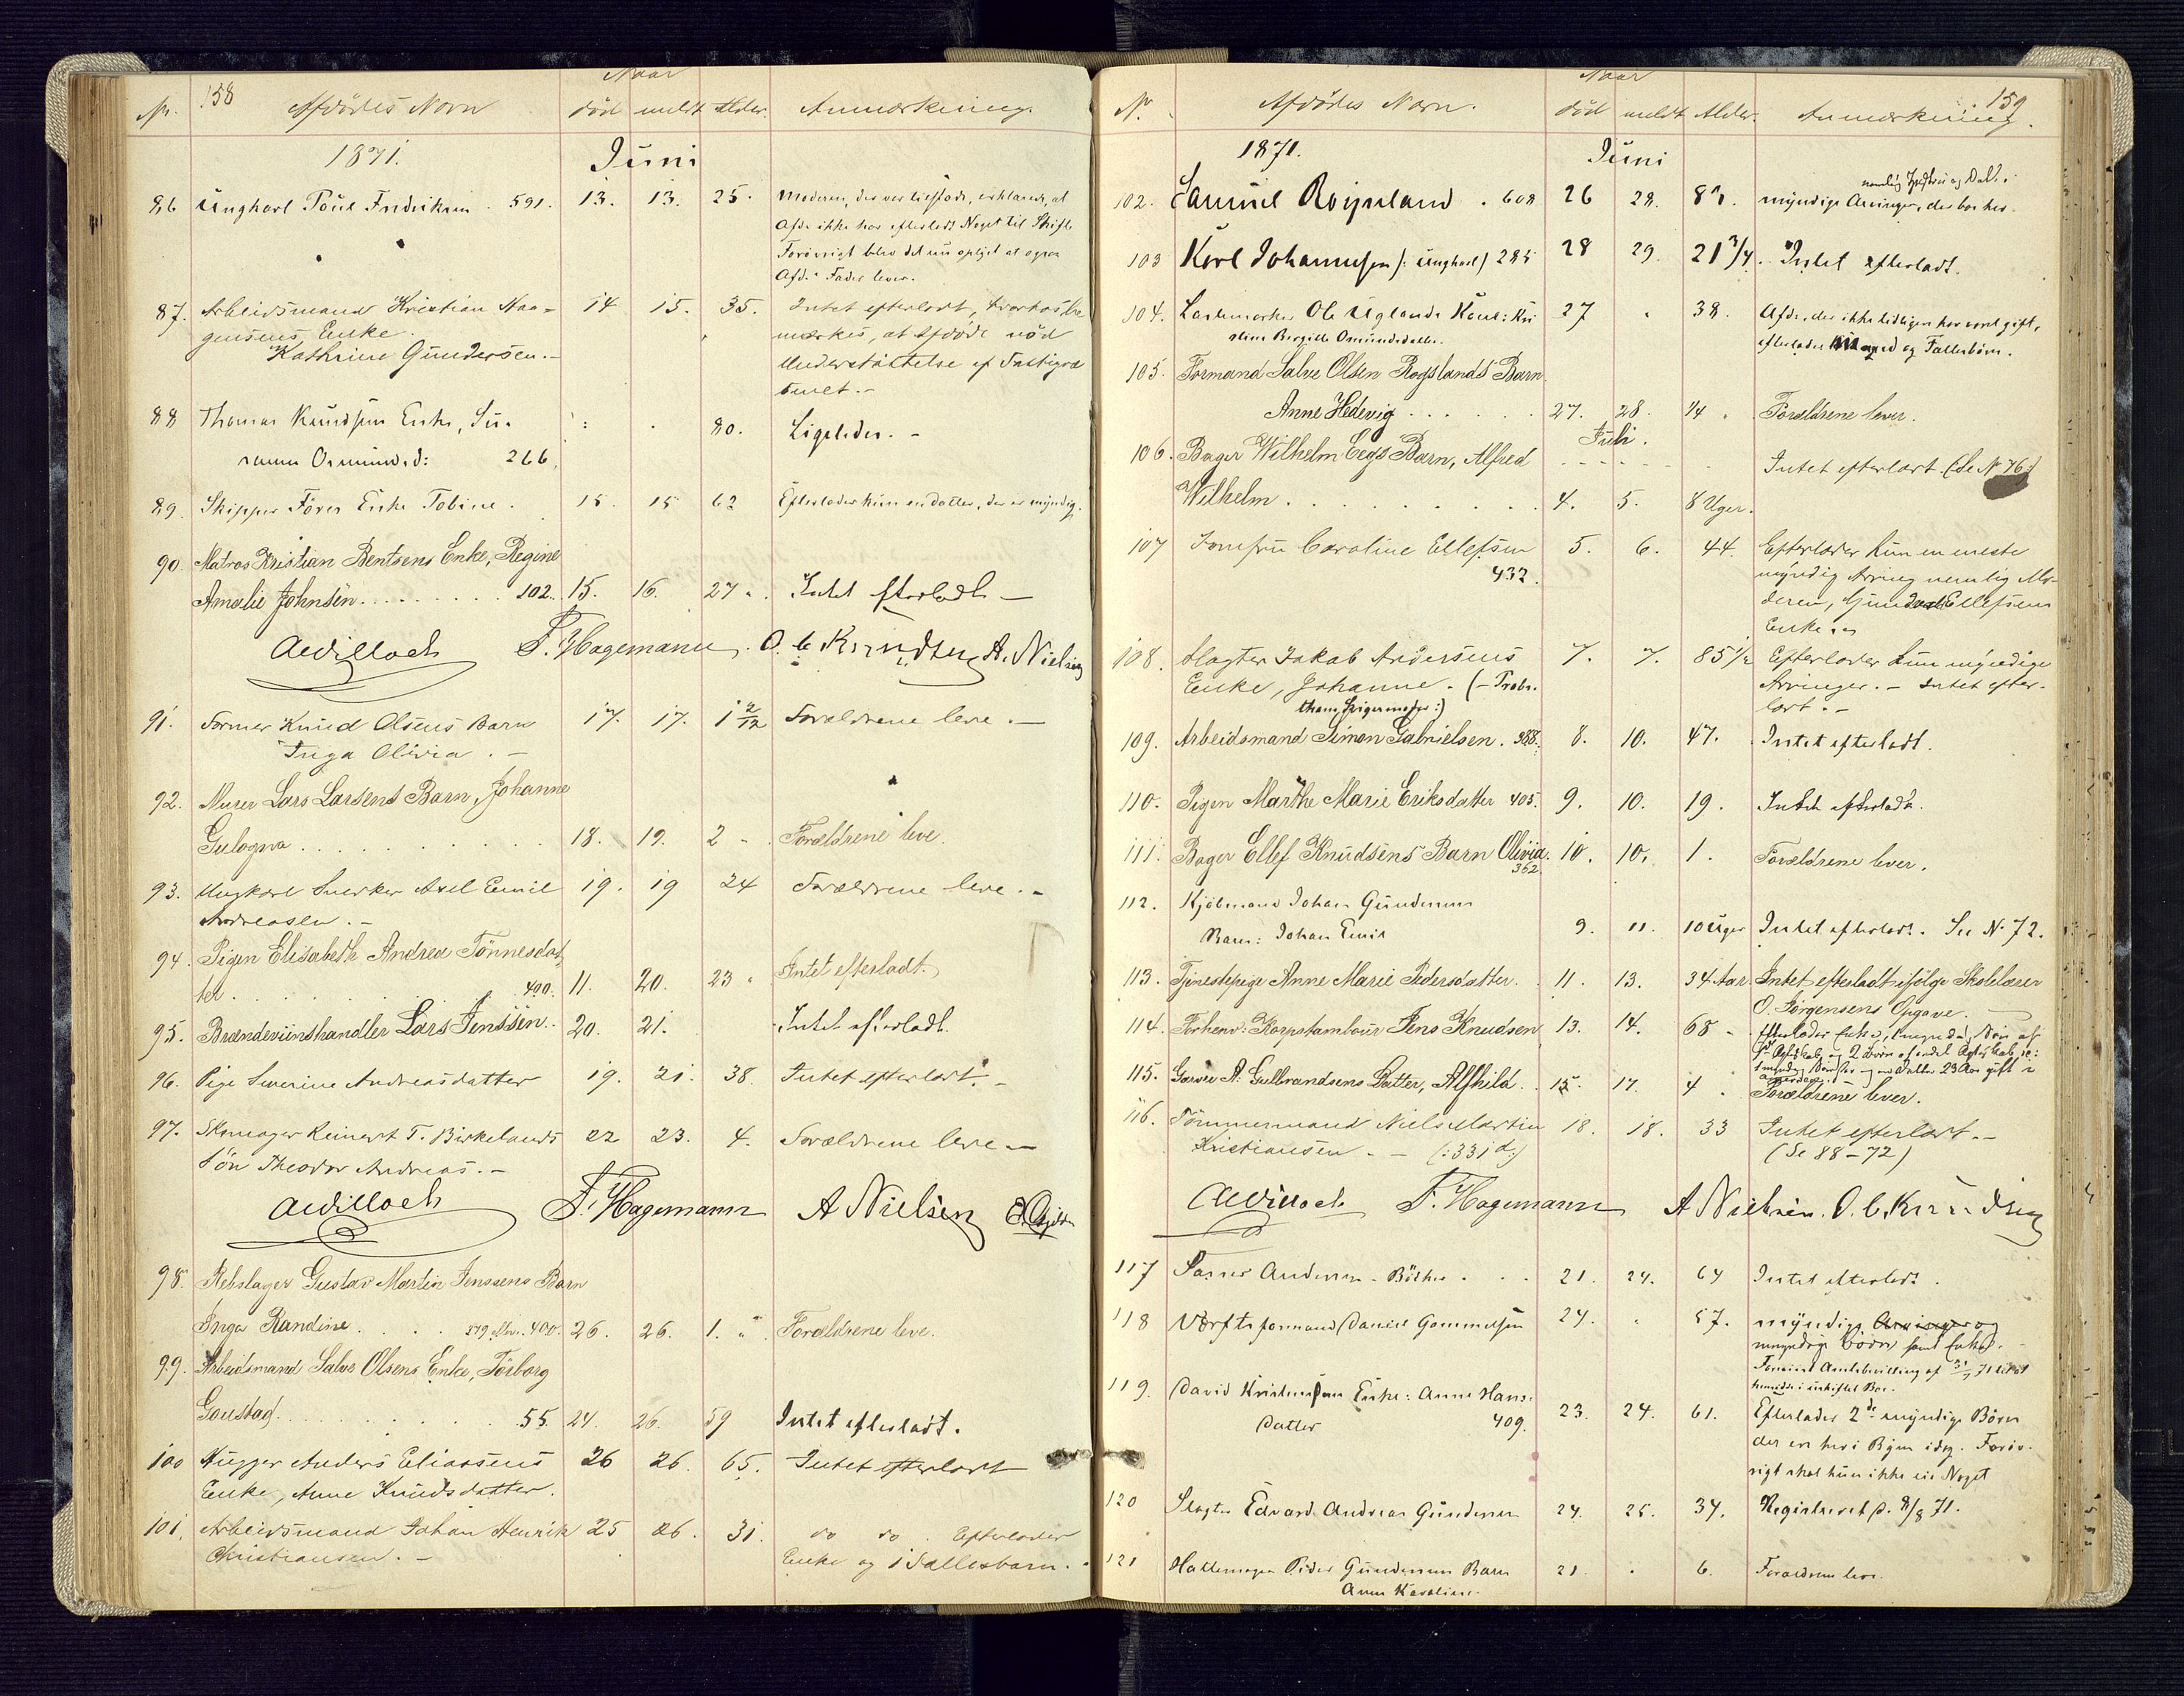 158
Naar
Nr. Afdødes Navn død meldt Alder. Anmærkning.
1871. Juni
86 Ungkarl Poul Fredriksen . 591. 13. 13. 25. Moderen, der var tilstede, erklærede, at
Afdø ikke har efterladt Noget til Skifte
Forøvrigt blev det nu oplyst at ogsaa
Afd. Fader lever.
87. Arbeidsmand Kristian Haa- 14 15. 35. Intet efterladt,
gensens Enke mærkes, at Afdøde nød
Kathrine Gundersen. – Understøttelse af Fattigvæ
senet. –
88 Thomas Knudsens Enke, Su- 80. Ligeledes. –
sanne Osmundsd: 266.
89. Skipper Enke Tobine . 15. 15 62 Efterlader kun en datter, der er myndig.
90. Matros Kristian Bentsens Enke, Regine
Amalie Johnsen . . . . . . . . 102. 15. 16. 27 ". Intet efterladt –
F. Hagemann. O. C. Knudsen A. Nielsen
91. Former Knud Olsens Barn 17. 17. 1 2/12 Forældrene leve. –
Inga Olivia . –
92. Murer Lars Larsens Barn, Johanne
Gulogna . . . . . . . . . 18. 19. 2 " Forældrene leve.
93. Ungkarl Snedker Axel Emil 19. 19 24 Forældrene leve. –
Andreasen. –
94. Pigen Elisabeth Andrea Tønnesdat
ter . . . . . . 400. 11. 20. 23 " Intet efterladt.
95. Brændeviinshandler Lars Jenssen . 20. 21. Intet efterladt.
96. Pige Severine Andreasdatter 19. 21. 38. Intet efterladt. –
97. Skomager Reinert T. Birkelands 22 23. 4. Forældrene leve –
Søn Theodor Andreas. –
F. Hagemann A Nielsen
98. Rebslager Gustav Martin Jenssens Barn
Inga Randine . . . . 400. 26. 26. 1. " Forældrene leve.
99. Arbeidsmand Salve Olsens Enke, Torborg
Goustad . . . . . . . . . 55 24. 26. 59 Intet efterladt.
100 Hugger Anders Eliassens 26 26. 65. Intet efterladt
Enke, Anne Knudsdatter.
101. Arbeidsmand Johan Henrik 25 26. 31. do do . Efterlader
Christiansen. – Enke og 1 Fællesbarn. –
159
Naar
Nr. Afdødes Navn. død meldt Alder. Anmærkning.
1871. Juni
102. Samuel Røisland . 608 26 28. myndige Arvinger, der bor her.
103 Karl Johannessen /: Ungkarl / 285 28 29. 21 3/4. Intet efterladt.
104. Ole Uglands Kone: Kri 27 " 38. Afdø, der ikke tidligere har været gift,
stine Bergitte Osmundsdatter. efterlader Mand og Fællesbørn.
105. Formand Salve Olsen Rogslands Barn
Anne Hedevig . . . . . . 27. 28. 1/4 " Forældrene lever.
Juli.
106. Bager Wilhelm Eegs Barn, Alfred Intet efterladt (Se No 76.)
Wilhelm . . . . . . . . . 4. 5. 8 Uger.
107 Jomfru Caroline Ellefsen 5. 6. 44. Efterlader kun en eneste
432. myndig Arving nemlig Mo-
deren, Ellefsens
Enke. –
108. Slagter Jakob Andersens 7. 7. 85 1/2 Efterlader kun myndige
Enke, Johanne . (– Arvinger. – Intet efter-
Svigermoder :) ladt. –
109. Arbeidsmand Simon Gabrielsen . 388. 8. 10. 47. Intet efterladt.
110. Pigen Marthe Marie Eriksdatter 405. 9. 10. 19. Intet efterladt.
111. Bager Ellef Knudsens Barn Olivia. 10. 10. 1. Forældrene lever.
362
112. Kjøbmand Johan Gundersens
Barn: Johan Emil 9. 11. 10 Uger Intet efterladt. See No 72.
113. Tjenestepige Anne Marie Pedersdatter. 11. 13. 34 Aar. Intet efterladt ifølge Skolelærer
O. Jørgensens Opgave.
114. Forhenv. Korpstambour Jens Knudsen 13. 14. 68 – Efterlader Enke, 1 myndig Søn af
1ste Ægteskab og 2 Børn af andet Ægteskab
Datter 23 Aar gift i
115. Garver A. Gulbrandsens Datter, Alfhild . 15. 17. 4 " Forældrene lever.
116. Tømmermand Niels Martin 18. 18. 33 Intet efterladt. –
Kristiansen . – (: 331 d:) (Se 88 – 72)
F. Hagemann A Nielsen. O. C. Knudsen
117 Andersen – Bødker . . . 21. 24. 64 Intet efterladt.
118 Værftsformand Daniel Gommelsen 24. " 57. myndige Arvinger og
umyndige Børn samt Enke. –
Amtsbevilling af 31/7 71
hensidde i uskiftet Bo.
119. David Kristensens Enke: Anne Hans- 23. 24. 61. Efterlader 2de myndige Børn
datter 409. der er her i Byen idag. Forøv-
rigt skal hun ikke eie Noget
120 Slagter Edvard Andreas Gundersen 24. 25. 34. Registreret d. 8/8 71.
121 Hattemager Peder Gundersens Barn 21 " 6. Forældrene leve.
Anne Karoline